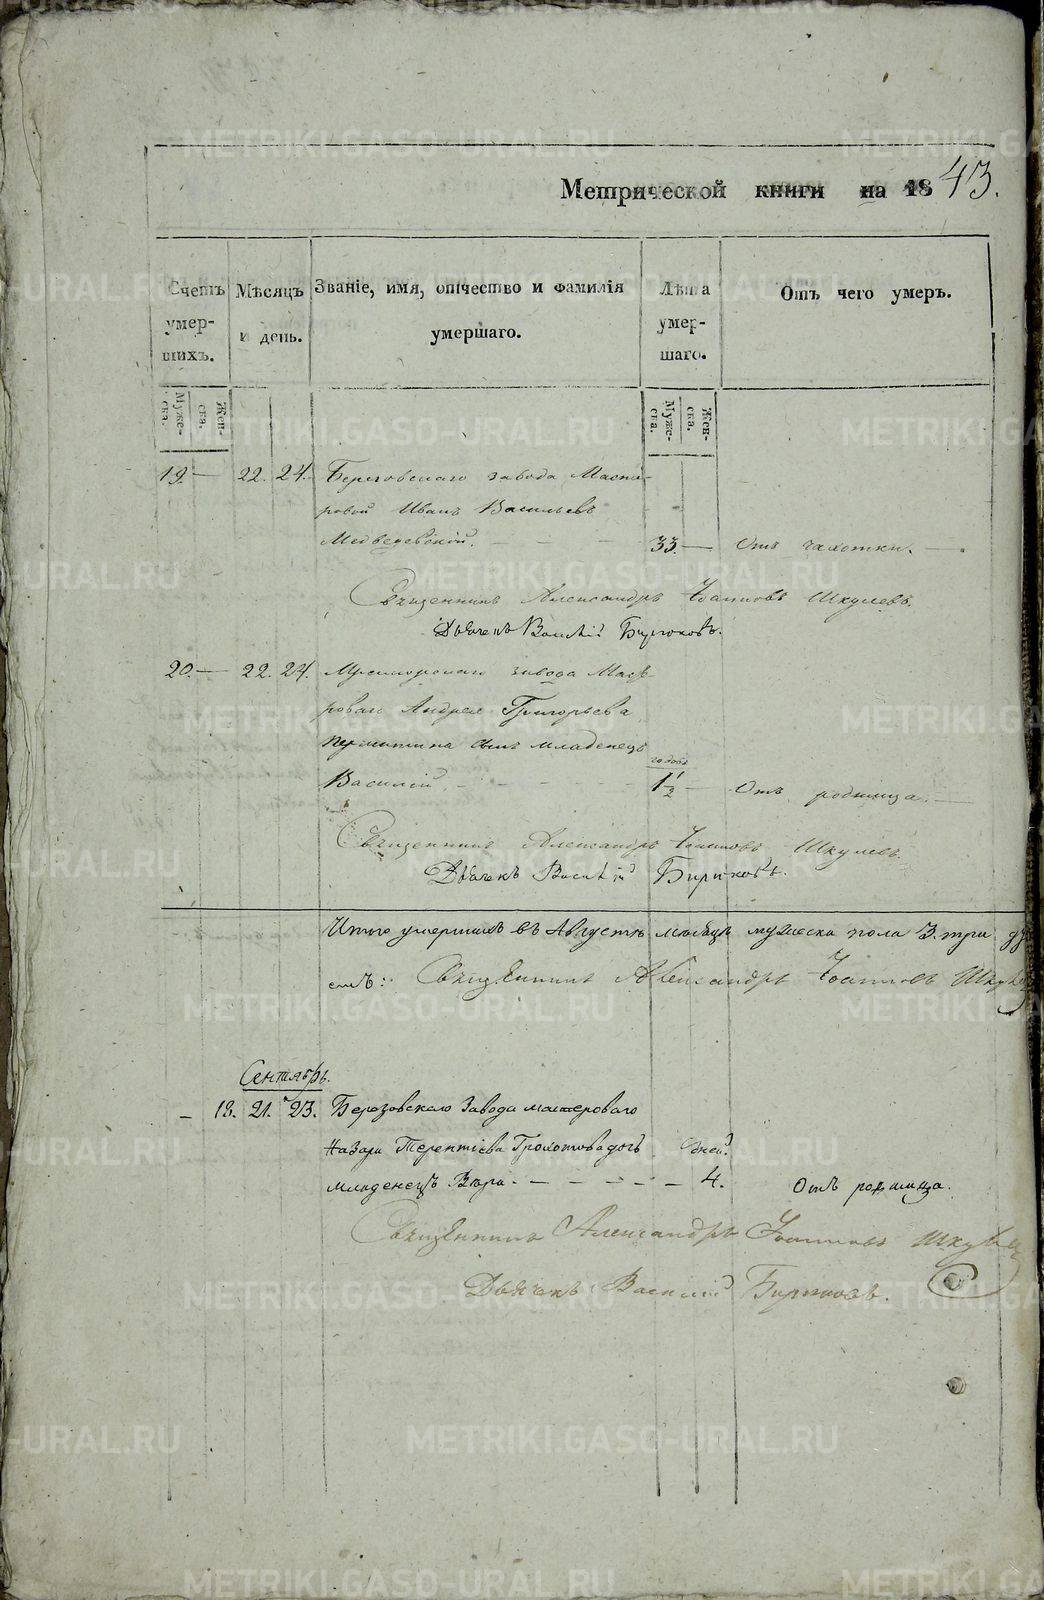 Метрической книги на 1843.
Счетъ умер- шихъ. Мѣсяцъ и день. Званіе, имя, отчество и фамилія умершаго. Лѣта умер- шаго. Отъ чего умеръ.
Муже- ска. Жен- ска. Муже- ска. Жен- ска.
19. — 22. 24. Березовскаго завода Масте-
ровой Иванъ Васильевъ
Медведевскій. — — — 33. — Отъ чахотки. —
Священникъ Александръ Іоанновъ Шкулевъ.
Дьячекъ Василій Бирюковъ.
20. — 22. 24. завода Масте-
роваго Андрея Григорьева
Пермитина сынъ младенецъ
годовъ
Василій. — — — 1 1/2 — Отъ родимца. —
Священникъ Александръ Іоанновъ Шкулевъ.
Дьячекъ Василій Бирюковъ.
Итого умершихъ въ Августѣ месяцѣ мужеска пола 3. три
Священникъ Александръ Іоанновъ Шкулевъ
Сентябрь.
— 18. 21. 23. Березовскаго Завода мастероваго
Назара Терентіева дочь дней
младенецъ Вѣра. — — — — — 4. Отъ родимца.
Священникъ Александръ Іоанновъ Шкулевъ
Дьячекъ Василій Бирюковъ.
METRIKI.GASO-URAL.RU